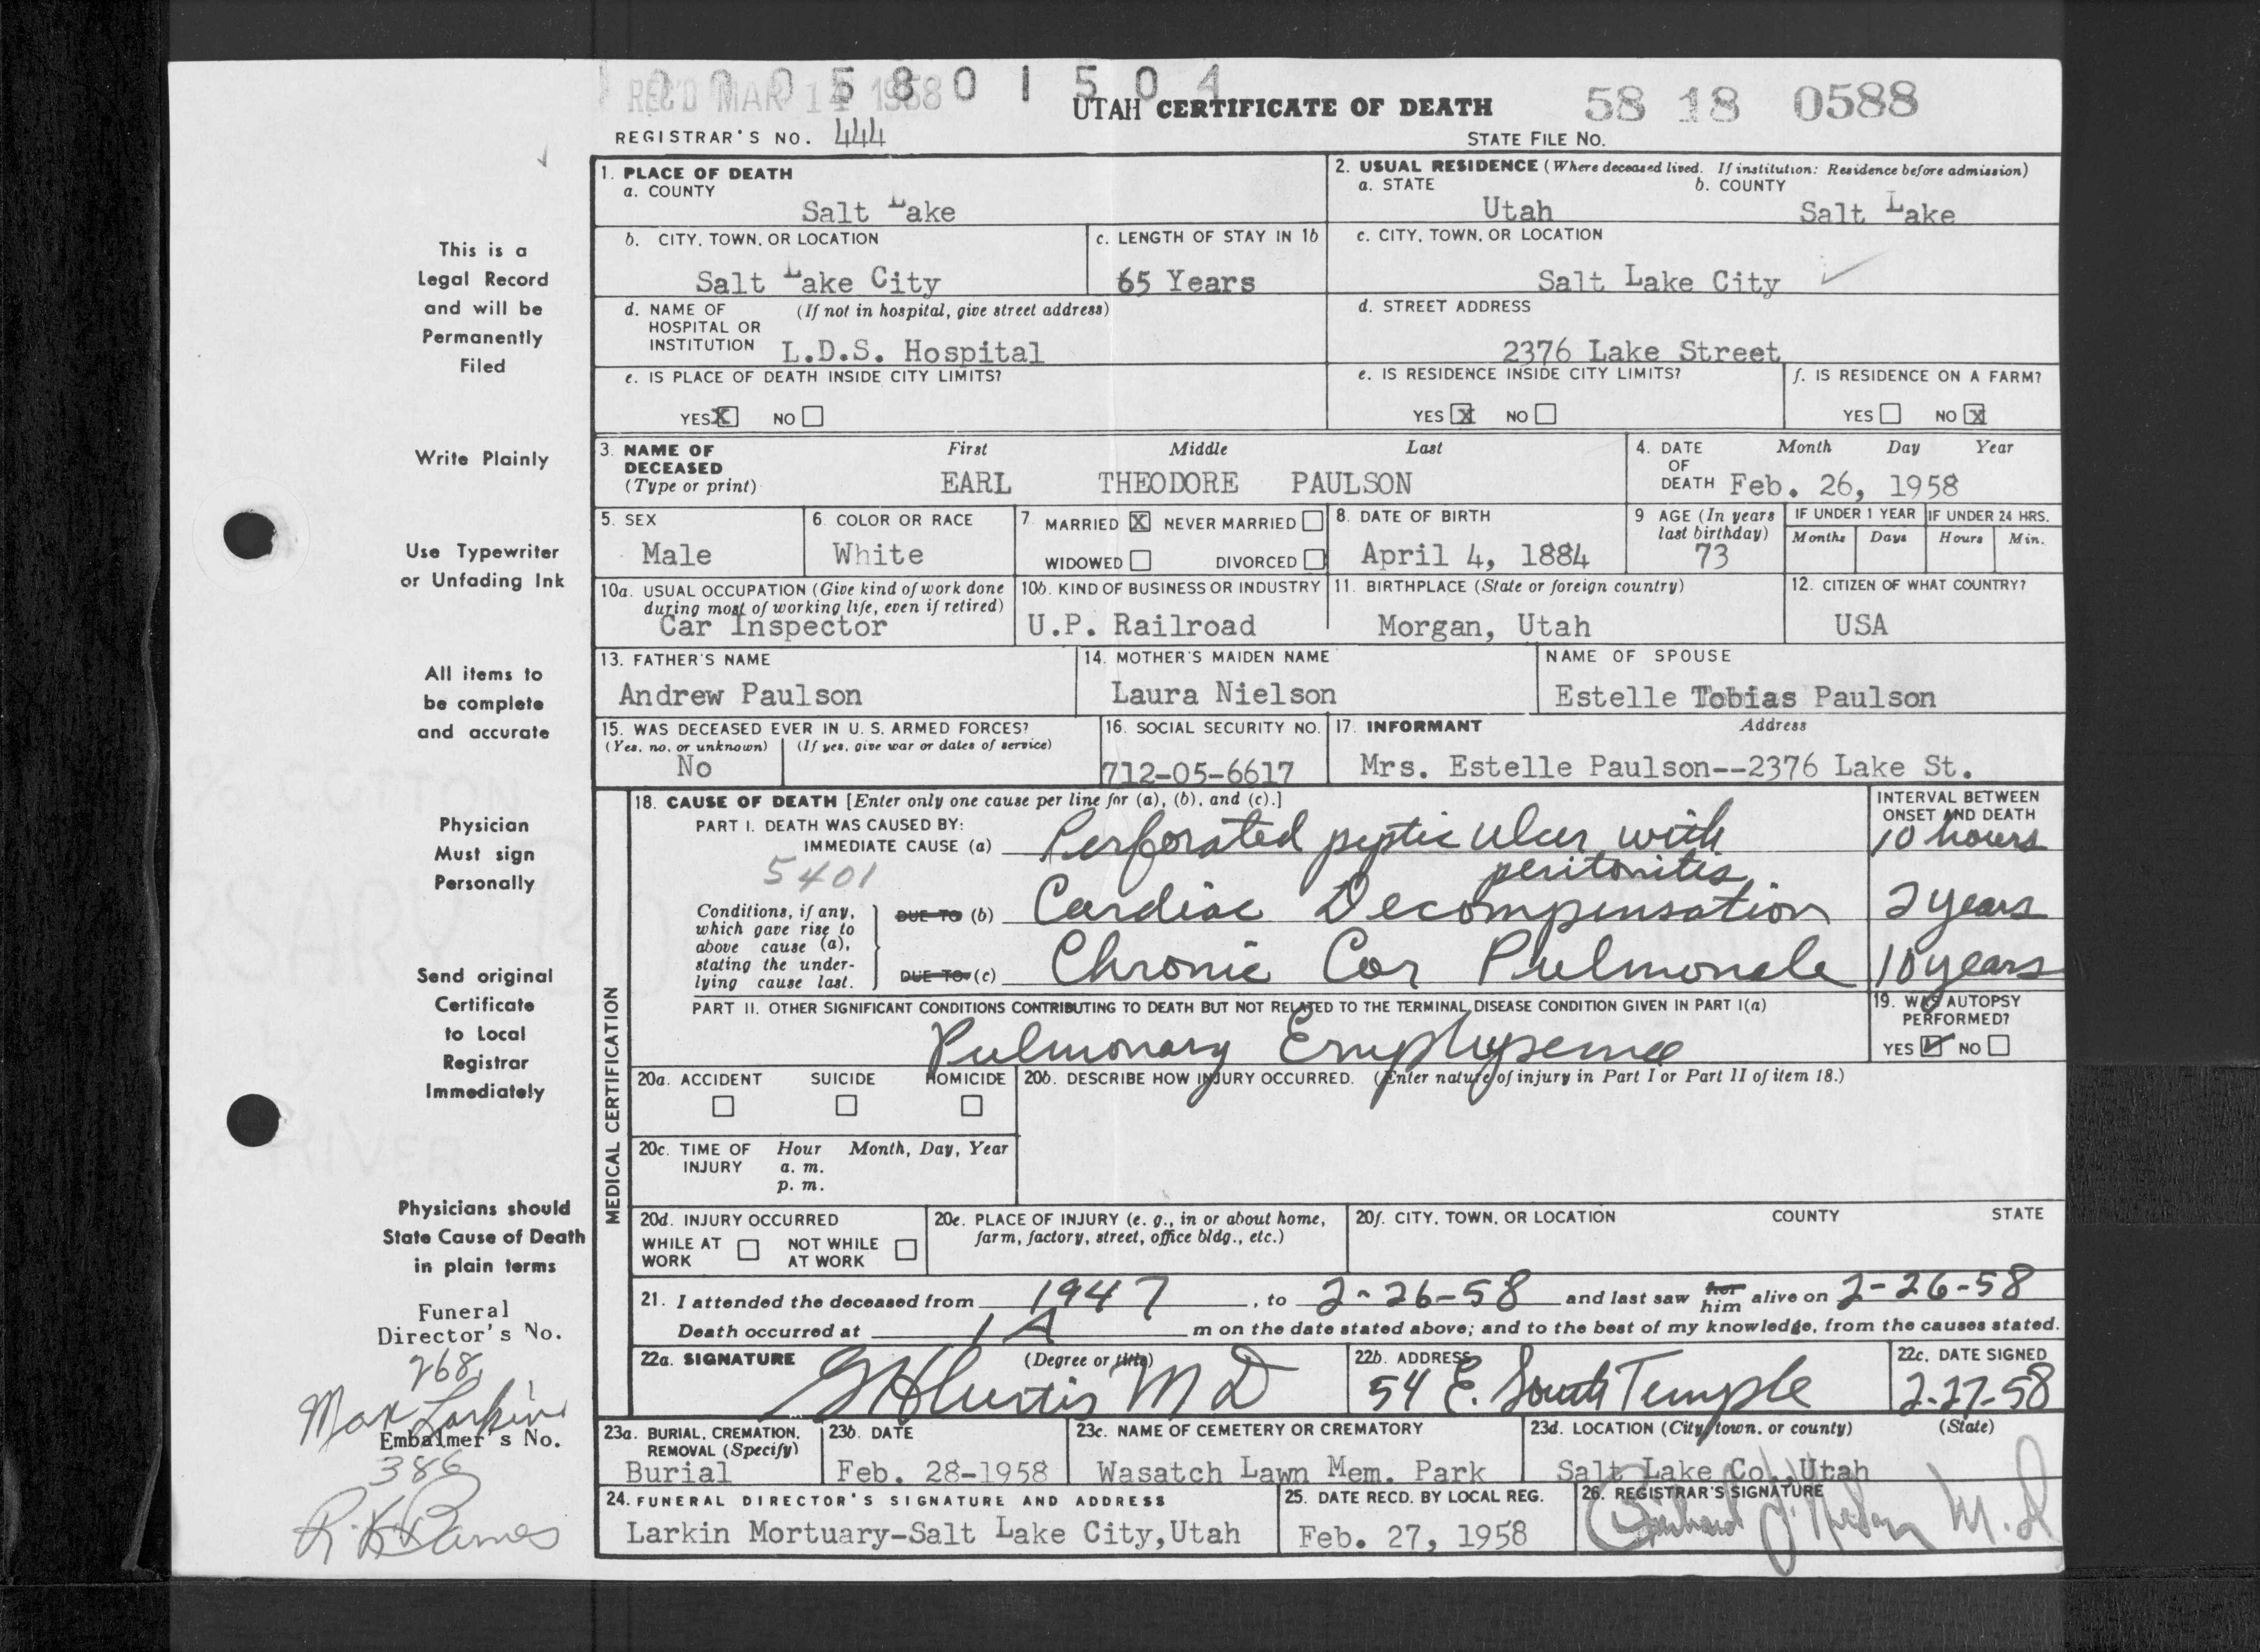 REC'D MAR 14 1958
0005801504
UTAH CERTIFICATE OF DEATH
58 18 0588
REGISTRAR'S NO. 444
STATE FILE NO.
1. PLACE OF DEATH
a. COUNTY
Salt Lake
2. USUAL RESIDENCE (Where deceased lived. If institution: Residence before admission)
a. STATE b. COUNTY
Utah Salt Lake
b. CITY, TOWN, OR LOCATION
Salt Lake City
c. LENGTH OF STAY IN 1b
65 Years
c. CITY, TOWN, OR LOCATION
Salt Lake City
d. NAME OF (If not in hospital, give street address)
HOSPITAL OR
INSTITUTION L.D.S. Hospital
d. STREET ADDRESS
2376 Lake Street
e. IS PLACE OF DEATH INSIDE CITY LIMITS?
YES X NO
e. IS RESIDENCE INSIDE CITY LIMITS?
YES X NO
f. IS RESIDENCE ON A FARM?
YES NO X
3. NAME OF DECEASED (Type or print)
First Middle Last
EARL THEODORE PAULSON
4. DATE OF DEATH
Month Day Year
Feb. 26, 1958
5. SEX
Male
6. COLOR OR RACE
White
7. MARRIED X NEVER MARRIED
WIDOWED DIVORCED
8. DATE OF BIRTH
April 4, 1884
9 AGE (In years last birthday)
73
IF UNDER 1 YEAR
Months Days
IF UNDER 24 HRS.
Hours Min.
10a. USUAL OCCUPATION (Give kind of work done
during most of working life, even if retired)
Car Inspector
10b. KIND OF BUSINESS OR INDUSTRY
U.P. Railroad
11. BIRTHPLACE (State or foreign country)
Morgan, Utah
12. CITIZEN OF WHAT COUNTRY?
USA
13. FATHER'S NAME
Andrew Paulson
14. MOTHER'S MAIDEN NAME
Laura Nielson
NAME OF SPOUSE
Estelle Tobias Paulson
15. WAS DECEASED EVER IN U. S. ARMED FORCES?
(Yes, no, or unknown) (If yes, give war or dates of service)
No
16. SOCIAL SECURITY NO.
712-05-6617
17. INFORMANT Address
Mrs. Estelle Paulson--2376 Lake St.
MEDICAL CERTIFICATION
18. CAUSE OF DEATH [Enter only one cause per line for (a), (b), and (c).]
INTERVAL BETWEEN
ONSET AND DEATH
PART I. DEATH WAS CAUSED BY:
IMMEDIATE CAUSE (a) Perforated peptic ulcer with 10 hours
peritonitis
5401
Conditions, if any,
which gave rise to
above cause (a),
stating the under-
lying cause last.
DUE TO (b) Cardiac Decompensation 2 years
DUE TO (c) Chronic Cor Pulmonale 10 years
PART II. OTHER SIGNIFICANT CONDITIONS CONTRIBUTING TO DEATH BUT NOT RELATED TO THE TERMINAL DISEASE CONDITION GIVEN IN PART I(a)
Pulmonary Emphysema
19. WAS AUTOPSY
PERFORMED?
YES ✓ NO
20a. ACCIDENT SUICIDE HOMICIDE
20b. DESCRIBE HOW INJURY OCCURRED. (Enter nature of injury in Part I or Part II of item 18.)
20c. TIME OF INJURY
Hour Month, Day, Year
a. m.
p. m.
20d. INJURY OCCURRED
WHILE AT WORK NOT WHILE AT WORK
20e. PLACE OF INJURY (e. g., in or about home,
farm, factory, street, office bldg., etc.)
20f. CITY, TOWN, OR LOCATION COUNTY STATE
21. I attended the deceased from 1947, to 2-26-58 and last saw her him alive on 2-26-58
Death occurred at 1 A m on the date stated above; and to the best of my knowledge, from the causes stated.
22a. SIGNATURE (Degree or title)
Curtis M D
22b. ADDRESS
54 E. South Temple
22c. DATE SIGNED
2-27-58
23a. BURIAL, CREMATION,
REMOVAL (Specify)
Burial
23b. DATE
Feb. 28-1958
23c. NAME OF CEMETERY OR CREMATORY
Wasatch Lawn Mem. Park
23d. LOCATION (City, town, or county) (State)
Salt Lake Co., Utah
24. FUNERAL DIRECTOR'S SIGNATURE AND ADDRESS
Larkin Mortuary-Salt Lake City,Utah
25. DATE RECD. BY LOCAL REG.
Feb. 27, 1958
26. REGISTRAR'S SIGNATURE
M.D
This is a
Legal Record
and will be
Permanently
Filed
Write Plainly
Use Typewriter
or Unfading Ink
All items to
be complete
and accurate
Physician
Must sign
Personally
Send original
Certificate
to Local
Registrar
Immediately
Physicians should
State Cause of Death
in plain terms
Funeral
Director's No.
268
Max Larkin
Embalmer's No.
386
R. K. Barnes